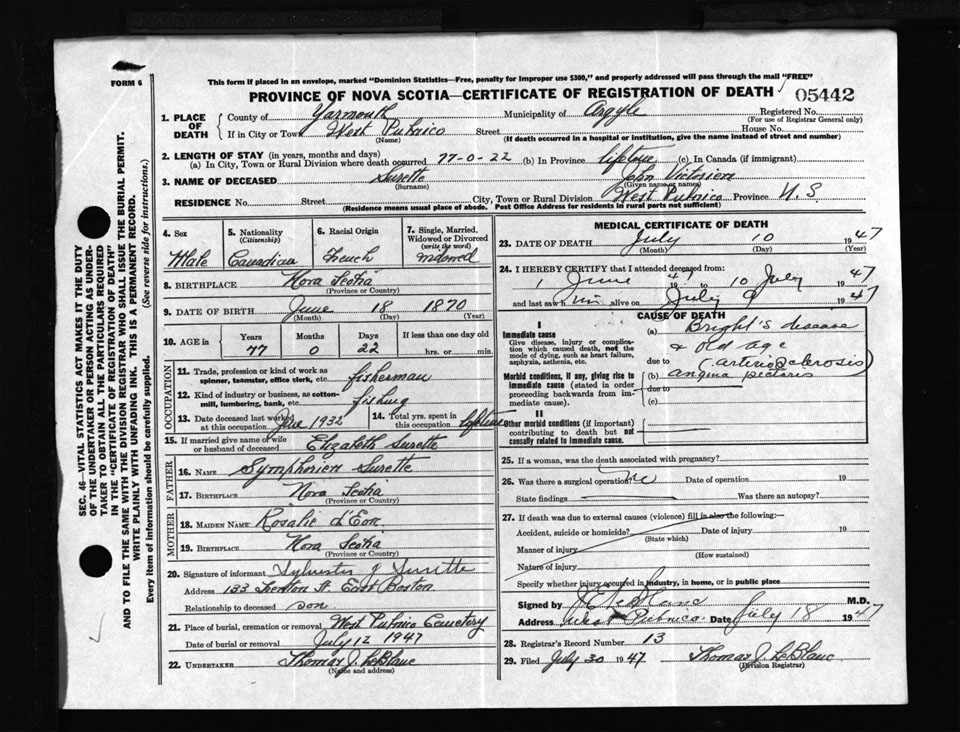 FORM 6
This form if placed in an envelope, marked "Dominion Statistics—Free, penalty for improper use $300," and properly addressed will pass through the mail "FREE"
PROVINCE OF NOVA SCOTIA—CERTIFICATE OF REGISTRATION OF DEATH 05442
1. PLACE OF DEATH County of Yarmouth Municipality of Argyle Registered No.
(For use of Registrar General only)
If in City or Town West Pubnico Street House No.
(Name) (If death occurred in a hospital or institution, give the name instead of street and number)
2. LENGTH OF STAY (in years, months and days)
(a) In City, Town or Rural Division where death occurred 77-0-22 (b) In Province lifetime (c) In Canada (if immigrant)
3. NAME OF DECEASED Surette John Victorien
(Surname) (Given name or names)
RESIDENCE No. Street City, Town or Rural Division West Pubnico Province N.S.
(Residence means usual place of abode. Post Office Address for residents in rural parts not sufficient)
4. Sex Male
5. Nationality (Citizenship) Canadian
6. Racial Origin French
7. Single, Married, Widowed or Divorced (write the word) widowed
8. BIRTHPLACE Nova Scotia
(Province or Country)
9. DATE OF BIRTH June 18 1870
(Month) (Day) (Year)
10. AGE in Years Months Days If less than one day old
77 0 22 hrs. or min.
OCCUPATION
11. Trade, profession or kind of work as spinner, teamster, office clerk, etc. fisherman
12. Kind of industry or business, as cotton-mill, lumbering, bank, etc. fishing
13. Date deceased last worked at this occupation June 1932
14. Total yrs. spent in this occupation lifetime
15. If married give name of wife or husband of deceased Elizabeth Surette
FATHER
16. NAME Sympherien Surette
17. BIRTHPLACE Nova Scotia
(Province or Country)
MOTHER
18. MAIDEN NAME Rosalie d'Eon
19. BIRTHPLACE Nova Scotia
(Province or Country)
20. Signature of informant Sylvester J Surette
Address 133 Trenton St. East Boston
Relationship to deceased son
21. Place of burial, cremation or removal West Pubnico Cemetery
Date of burial or removal July 12 1947
22. UNDERTAKER Thomas J. LeBlanc
(Name and address)
MEDICAL CERTIFICATE OF DEATH
23. DATE OF DEATH July 10 1947
(Month) (Day) (Year)
24. I HEREBY CERTIFY that I attended deceased from:
1 June 1947 to 10 July 1947
and last saw h im alive on July 9 1947
CAUSE OF DEATH
I
Immediate cause
Give disease, injury or complication which caused death, not the mode of dying, such as heart failure, asphyxia, asthenia, etc.
(a) Bright's disease
& old age
due to (arteriosclerosis)
Morbid conditions, if any, giving rise to immediate cause (stated in order proceeding backwards from immediate cause).
(b) angina pectoris
due to
(c)
II
Other morbid conditions (if important) contributing to death but not causally related to immediate cause.
25. If a woman, was the death associated with pregnancy?
26. Was there a surgical operation? no Date of operation 19
State findings Was there an autopsy?
27. If death was due to external causes (violence) fill in also the following:—
Accident, suicide or homicide? Date of injury 19
(State which)
Manner of injury
(How sustained)
Nature of injury
Specify whether injury occurred in industry, in home, or in public place
Signed by LeBlanc M.D.
Address West Pubnico. Date July 18 1947
28. Registrar's Record Number 13
29. Filed July 30 1947 Thomas J. LeBlanc
(Division Registrar)
SEC. 46—VITAL STATISTICS ACT MAKES IT THE DUTY
OF THE UNDERTAKER OR PERSON ACTING AS UNDER-
TAKER TO OBTAIN ALL THE PARTICULARS REQUIRED
IN THE "CERTIFICATE OF REGISTRATION OF DEATH"
AND TO FILE THE SAME WITH THE DIVISION REGISTRAR WHO SHALL ISSUE THE BURIAL PERMIT.
WRITE PLAINLY WITH UNFADING INK. THIS IS A PERMANENT RECORD.
Every item of Information should be carefully supplied. (See reverse side for instructions.)